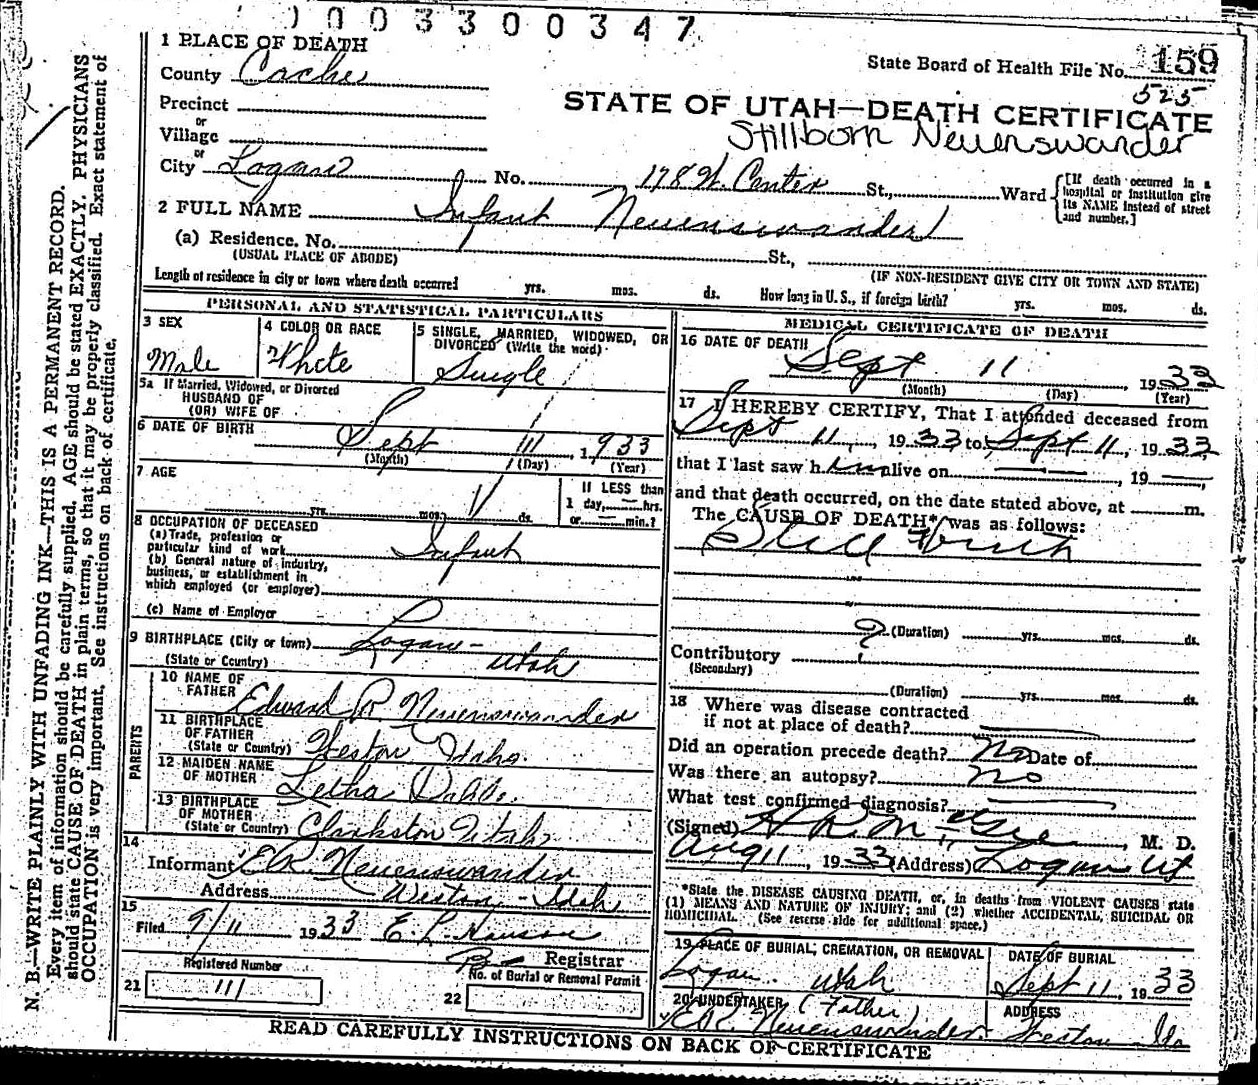 0003300347
1 PLACE OF DEATH
County Cache
State Board of Health File No. 159
525
Precinct
or
Village
or
STATE OF UTAH—DEATH CERTIFICATE
Stillborn Neuenswander
City Logan No. 178 W. Center St., Ward [If death occurred in a hospital or institution give its NAME instead of street and number.]
2 FULL NAME Infant Neuenswander
(a) Residence. No. St.,
(USUAL PLACE OF ABODE) (IF NON-RESIDENT GIVE CITY OR TOWN AND STATE)
Length of residence in city or town where death occurred yrs. mos. ds. How long in U. S., if foreign birth? yrs. mos. ds.
PERSONAL AND STATISTICAL PARTICULARS
3 SEX
Male
4 COLOR OR RACE
White
5 SINGLE, MARRIED, WIDOWED, OR DIVORCED (Write the word)
Single
5a If Married, Widowed, or Divorced
HUSBAND OF
(OR) WIFE OF
6 DATE OF BIRTH Sept 11, 1933
(Month) (Day) (Year)
7 AGE
yrs. mos. ds.
If LESS than
1 day, — hrs.
or — min.?
8 OCCUPATION OF DECEASED
(a) Trade, profession or
particular kind of work Infant
(b) General nature of industry,
business, or establishment in
which employed (or employer)
(c) Name of Employer
9 BIRTHPLACE (City or town) Logan -
(State or Country) Utah
PARENTS
10 NAME OF
FATHER Edward R. Neuenswander
11 BIRTHPLACE
OF FATHER
(State or Country) Weston Idaho
12 MAIDEN NAME
OF MOTHER Letha
13 BIRTHPLACE
OF MOTHER
(State or Country) Clarkston Utah
14
Informant E R. Neuenswander
Address Weston - Idah
15
Filed 9/11 1933 E. L. Hanson
Registrar
Registered Number
21 111
No. of Burial or Removal Permit
22
MEDICAL CERTIFICATE OF DEATH
16 DATE OF DEATH
Sept 11, 1933
(Month) (Day) (Year)
17 I HEREBY CERTIFY, That I attended deceased from
Sept 11, 1933 to Sept 11, 1933
that I last saw h im alive on — , 19 —,
and that death occurred, on the date stated above, at m.
The CAUSE OF DEATH* was as follows:
Still Birth
? (Duration) yrs. mos. ds.
Contributory
(Secondary)
(Duration) yrs. mos. ds.
18 Where was disease contracted
if not at place of death?
Did an operation precede death? No Date of
Was there an autopsy? No
What test confirmed diagnosis?
(Signed) H R. McGee, M. D.
Aug 11, 1933 (Address) Logan Ut
*State the DISEASE CAUSING DEATH, or, in deaths from VIOLENT CAUSES state
(1) MEANS AND NATURE OF INJURY; and (2) whether ACCIDENTAL, SUICIDAL OR
HOMICIDAL. (See reverse side for additional space.)
19 PLACE OF BURIAL, CREMATION, OR REMOVAL
Logan Utah
DATE OF BURIAL
Sept 11, 1933
20 UNDERTAKER (Father)
E R. Neuenswander
ADDRESS
Weston Ida
READ CAREFULLY INSTRUCTIONS ON BACK OF CERTIFICATE
N. B.—WRITE PLAINLY WITH UNFADING INK—THIS IS A PERMANENT RECORD.
Every item of information should be carefully supplied. AGE should be stated EXACTLY. PHYSICIANS
should state CAUSE OF DEATH in plain terms, so that it may be properly classified. Exact statement of
OCCUPATION is very important. See instructions on back of certificate.